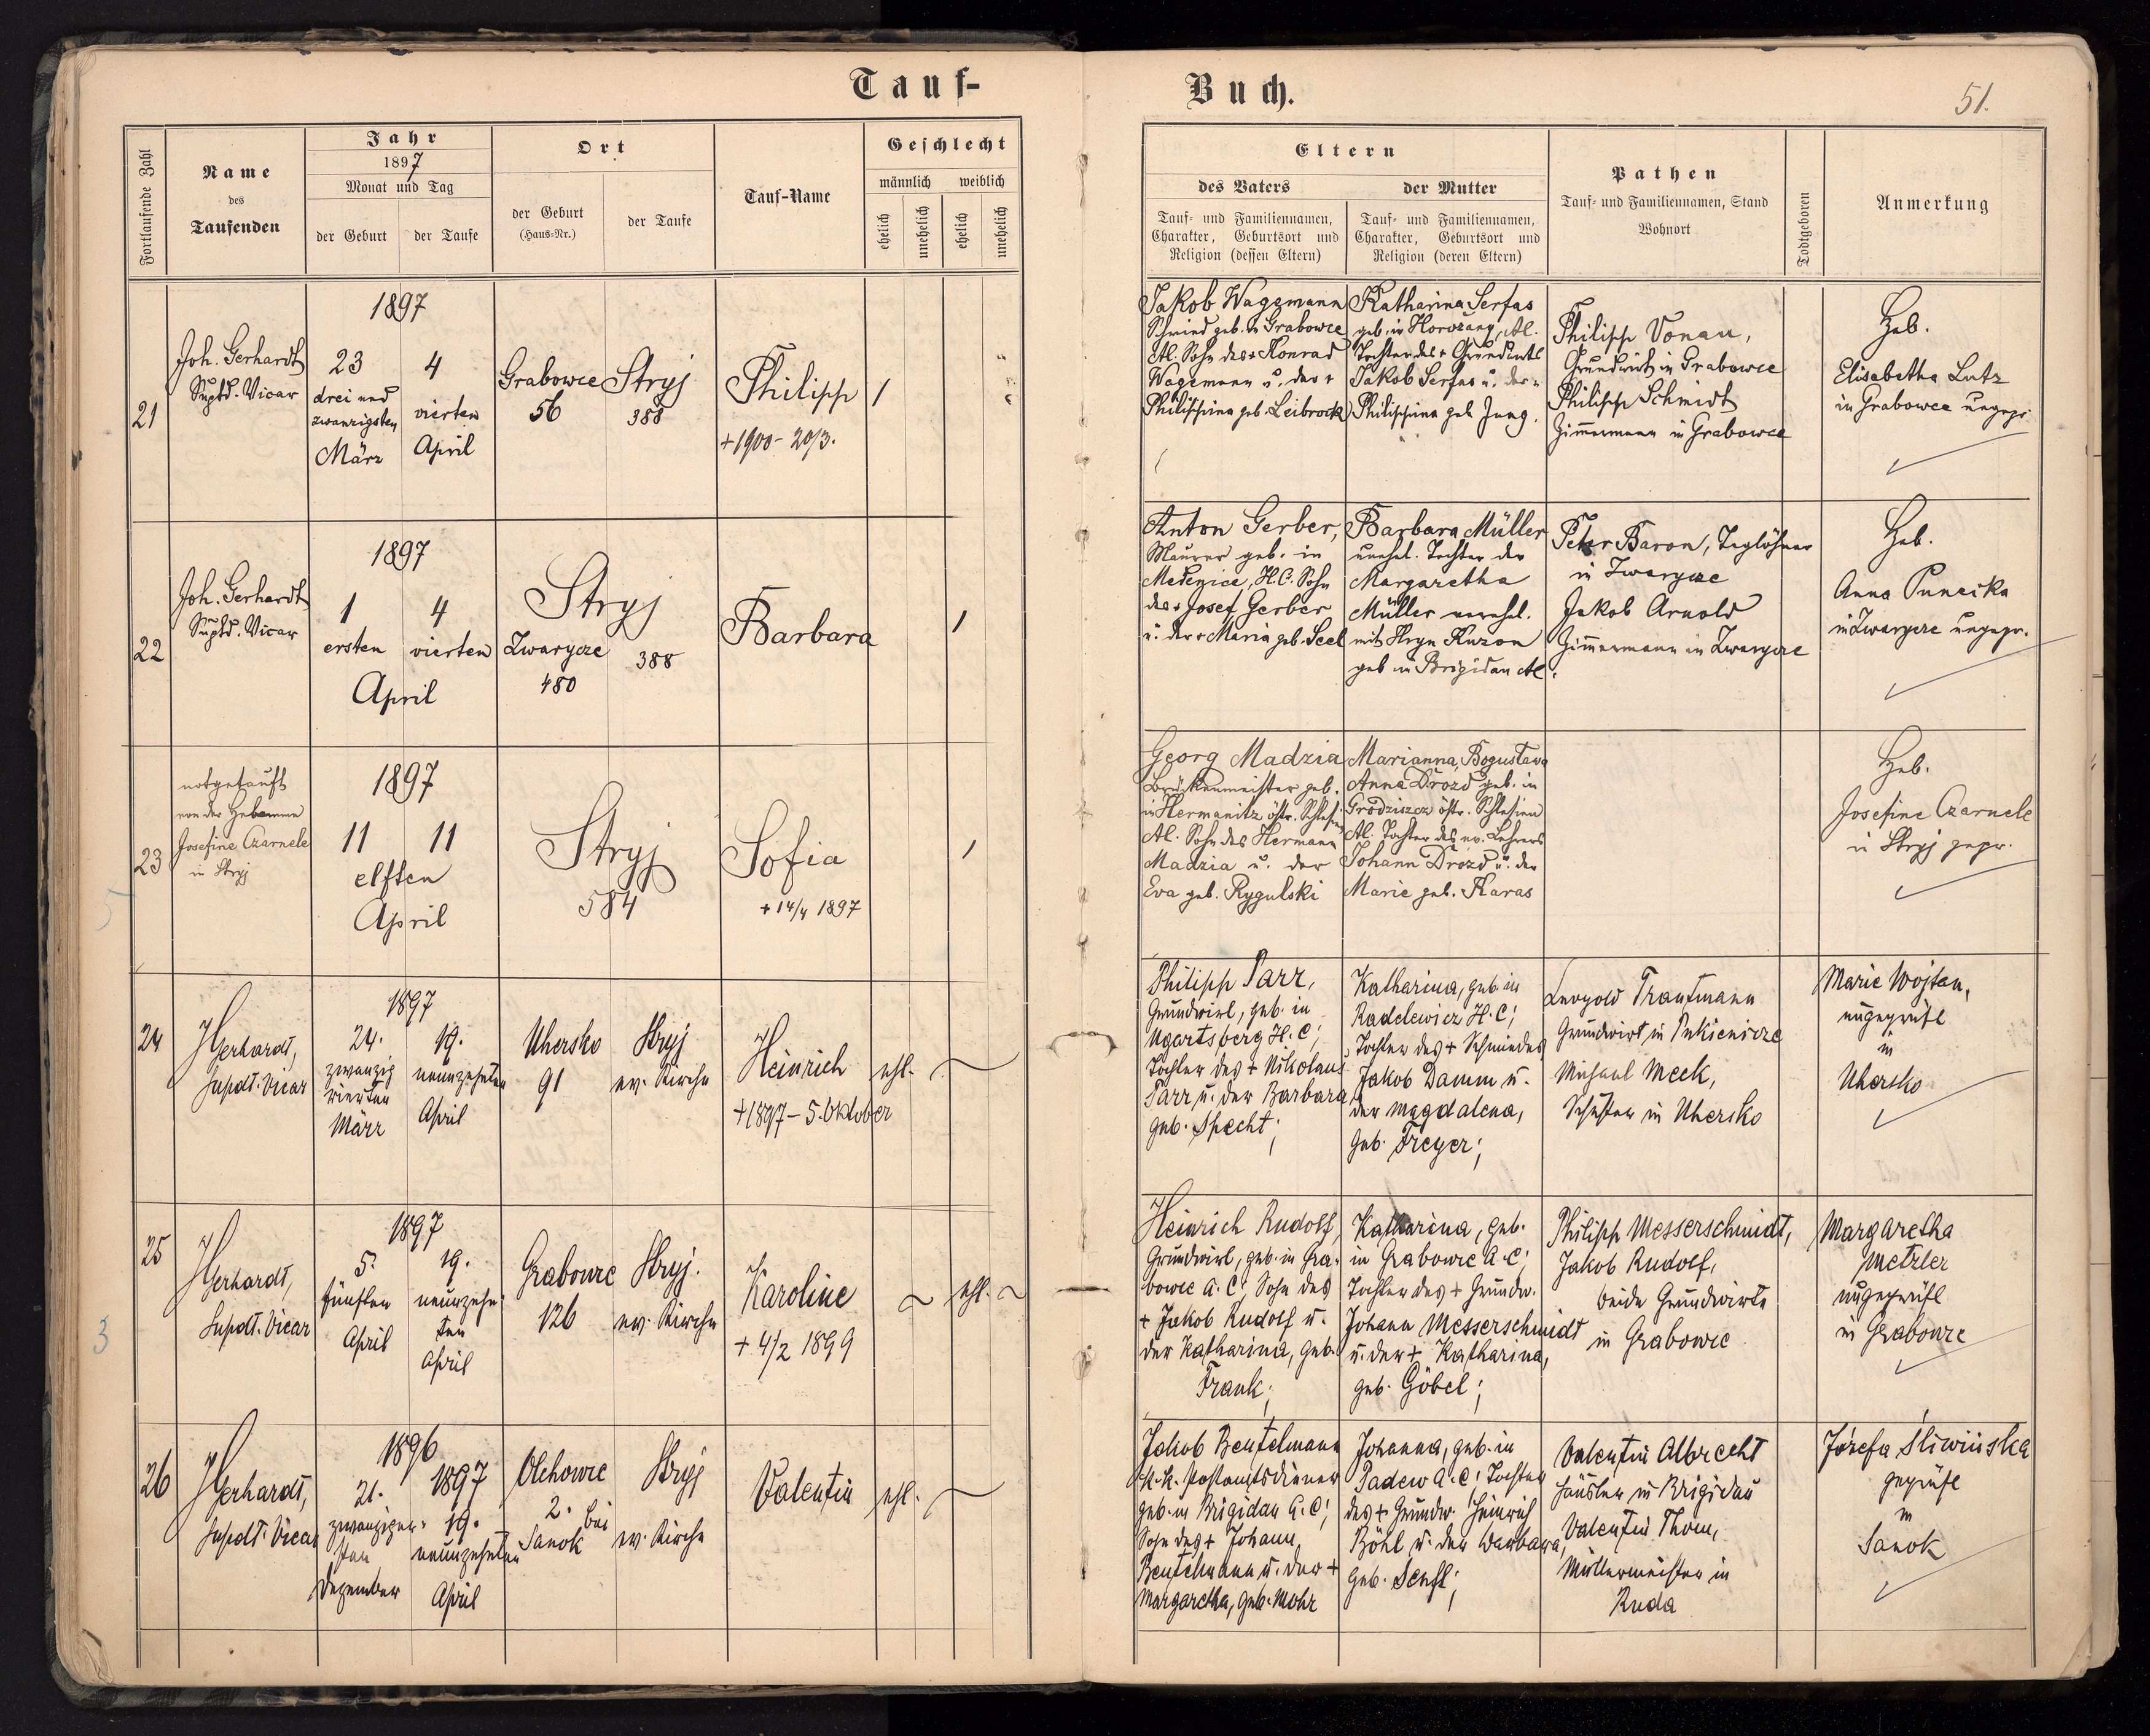 Tauf-
Buch.
51.
Fortlaufende Zahl
Name
des
Taufenden
Jahr
1897
Monat und Tag
der Geburt
der Taufe
Ort
der Geburt
(Haus-Nr.)
der Taufe
Tauf-Name
Geschlecht
männlich
weiblich
ehelich
unehelich
ehelich
unehelich
Eltern
des Vaters
Tauf- und Familiennamen,
Charakter, Geburtsort und
Religion (dessen Eltern)
der Mutter
Tauf- und Familiennamen,
Charakter, Geburtsort und
Religion (deren Eltern)
Pathen
Tauf- und Familiennamen, Stand
Wohnort
Todtgeboren
Anmerkung
21
Joh. Gerhardt
Suptd. Vicar
1897
23
drei und
zwanzigsten
März
4
vierten
April
Grabowce
56
Stryj
388
Philipp
+1900 - 20/3.
1
Jakob Wagemann
Schmied geb. in Grabowce
A.C. Sohn des + Konrad
Wagemann u. der +
Philippina geb. Leibrock
Katharina Serfas
geb. in Horożany, A.C.
Tochter des + Grundwirts
Jakob Serfas u. der
Philippina geb. Jung.
Philipp Vonau,
Grundwirt in Grabowce
Philipp Schmidt
Zimmermann in Grabowce
Heb.
Elisabetha Lutz
in Grabowce ungepr.
22
Joh. Gerhardt
Suptd. Vicar
1897
1
ersten
4
vierten
April
Stryj
Zwarycze
480
388
Barbara
1
Anton Gerber,
Maurer geb. in
Medenice, H.C. Sohn
des + Josef Gerber
u. der + Maria geb. Seel
Barbara Müller
unehel. Tochter der
Margaretha
Müller verehel.
mit Hryn Kuzon
geb. in Brigidau A.C.
Peter Baron, Taglöhner
in Zwarycze
Jakob Arnold
Zimmermann in Zwarycze
Heb.
Anna Punecka
in Zwarycze ungepr.
23
notgetauft
von der Hebamme
Josefine Czarnele
in Stryj
1897
11
11
elften
April
Stryj
584
Sofia
+ 14/4 1897
1
Georg Madzia
Brückenmeister geb.
in Hermanitz östr. Schlesien
A.C. Sohn des Hermann
Madzia u. der
Eva geb. Rygulski
Marianna, Bogusława
Anna Drozd geb. in
Grodziszcz östr. Schlesien
A.C. Tochter des ev. Lehrers
Johann Drozd u. der
Marie geb. Karas
Heb.
Josefine Czarnele
in Stryj gepr.
24
JGerhardt,
Supdt. Vicar
1897
24.
zwanzig
vierten
März
19.
neunzehnten
April
Uhersko
91
Stryj
ev. Kirche
Heinrich
+1897 - 5. Oktober
ehl.
Philipp Parr,
Grundwirt, geb. in
Ugartsberg H.C;
Tochter des + Nikolaus
Parr u. der Barbara
geb. Specht;
Katharina, geb. in
Kadelewicz H.C;
Tochter des + Schmiedes
Jakob Damm u.
der Magdalena,
geb. Freyer;
Leopold Trautmann
Grundwirt in Pukienicze
Michael Meck,
Schuster in Uhersko
Marie Wojtan,
ungeprüft
in
Uhersko
25
JGerhardt,
Supdt. Vicar
1897
5.
fünften
April
19.
neunzehn
ten
April
Grabowce
126
Stryj.
ev. Kirche
Karoline
+ 4/2 1899
ehl.
Heinrich Rudolf,
Grundwirt, geb. in Gra-
bowce A.C; Sohn des
+ Jakob Rudolf u.
der Katharina, geb.
Frank;
Katharina, geb.
in Grabowce A.C;
Tochter des + Grundw.
Johann Messerschmidt
u. der + Katharina,
geb. Göbel;
Philipp Messerschmidt,
Jakob Rudolf,
beide Grundwirte
in Grabowce
Margaretha
Metzler
ungeprüft
in Grabowce
26
JGerhardt,
Supdt. Vicar
1896
21.
zwanzigen-
sten
Dezember
1897
19.
neunzehnten
April
Olchowce
2. bei
Sanok
Stryj
ev. Kirche
Valentin
ehl.
Jakob Beutelmann
k.k. Postamtsdiener
geb. in Brigidau A.C;
Sohn des + Johann
Beutelmann u. der +
Margaretha, geb. Mohr
Johanna, geb. in
Padew A.C; Tochter
des + Grundw. Heinrich
Böhl u. der Barbara,
geb. Senft;
Valentin Albrecht
Häusler in Brigidau
Valentin Thom,
Müllermeister in
Ruda
Józefa Śliwińska
geprüft
in
Sanok
5
3